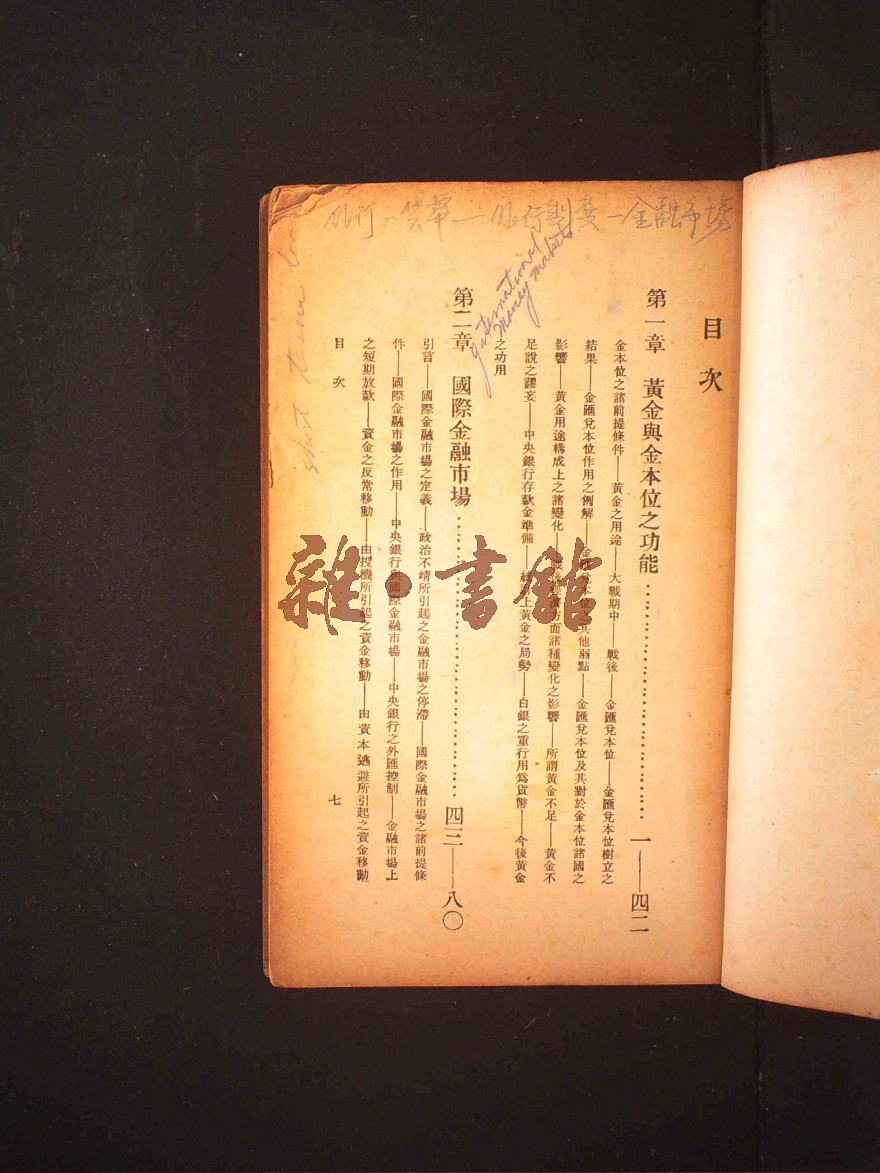 銀行－貨幣－銀行制度－金融市場
International
Money Market
目次
第一章　黃金與金本位之功能……………………一——四二
金本位之諸前提條件——黃金之用途——大戰期中——戰後——金匯兌本位——金匯兌本位樹立之
結果——金匯兌本位作用之例解——金匯兌本位之其他弱點——金匯兌本位及其對於金本位諸國之
影響——黃金用途構成上之諸變化——方面諸種變化之影響——所謂黃金不足——黃金不
足說之謬妄——中央銀行存款金準備——上黃金之局勢——白銀之重行用爲貨幣——今後黃金
之功用
第二章　國際金融市場……………………四三——八〇
引言——國際金融市場之定義——政治不靖所引起之金融市場之停滯——國際金融市場之諸前提條
件——國際金融市場之作用——中央銀行與國際金融市場——中央銀行之外匯控制——金融市場上
之短期放款——資金之反常移動——由投機所引起之資金移動——由資本逃避所引起之資金移動
目次
七
short term
雜·書館